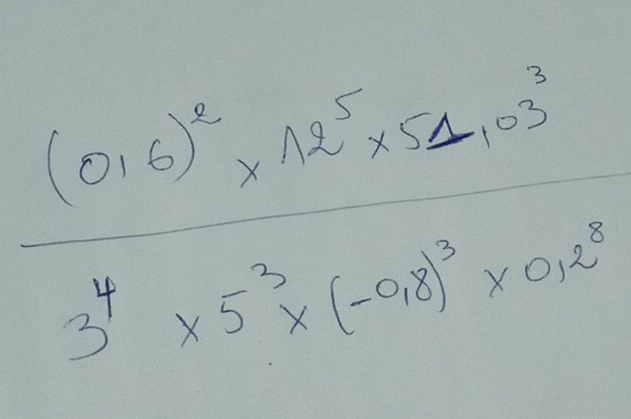 (0,6)² × 12⁵ × 51,03³
3⁴ × 5³ × (-0,8)³ × 0,2⁸